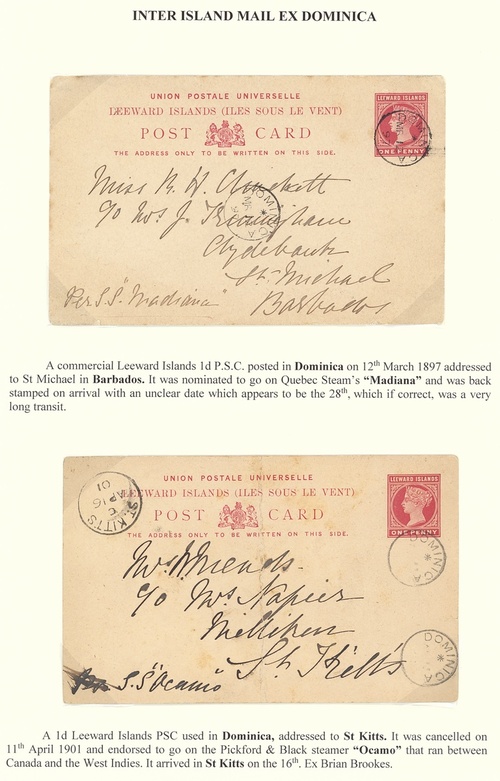 INTER ISLAND MAIL EX DOMINICA
UNION POSTALE UNIVERSELLE
LEEWARD ISLANDS (ILES SOUS LE VENT)
POST CARD
THE ADDRESS ONLY TO BE WRITTEN ON THIS SIDE.
LEEWARD ISLANDS
ONE PENNY
DOMINICA
Miss
c/o Mrs J.
DOMINICA
St. Michael
Barbados
Per S.S. "Madiana"
A commercial Leeward Islands 1d P.S.C. posted in Dominica on 12th March 1897 addressed
to St Michael in Barbados. It was nominated to go on Quebec Steam's "Madiana" and was back
stamped on arrival with an unclear date which appears to be the 28th, which if correct, was a very
long transit.
UNION POSTALE UNIVERSELLE
LEEWARD ISLANDS (ILES SOUS LE VENT)
POST CARD
THE ADDRESS ONLY TO BE WRITTEN ON THIS SIDE.
LEEWARD ISLANDS
ONE PENNY
ST. KITTS
C
AP 16
01
DOMINICA
Mrs
c/o Mrs Napier
St. Kitts
DOMINICA
S.S. "Ocamo"
A 1d Leeward Islands PSC used in Dominica, addressed to St Kitts. It was cancelled on
11th April 1901 and endorsed to go on the Pickford & Black steamer "Ocamo" that ran between
Canada and the West Indies. It arrived in St Kitts on the 16th. Ex Brian Brookes.